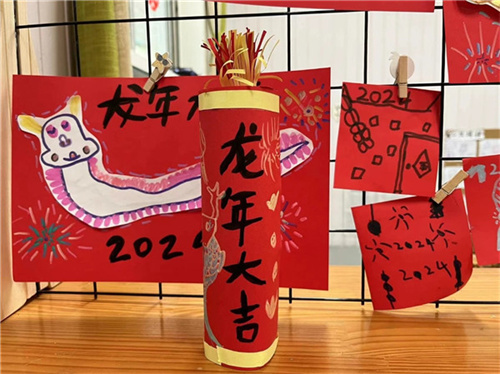 龙年
2024
龙年大吉
2024
2024
2024